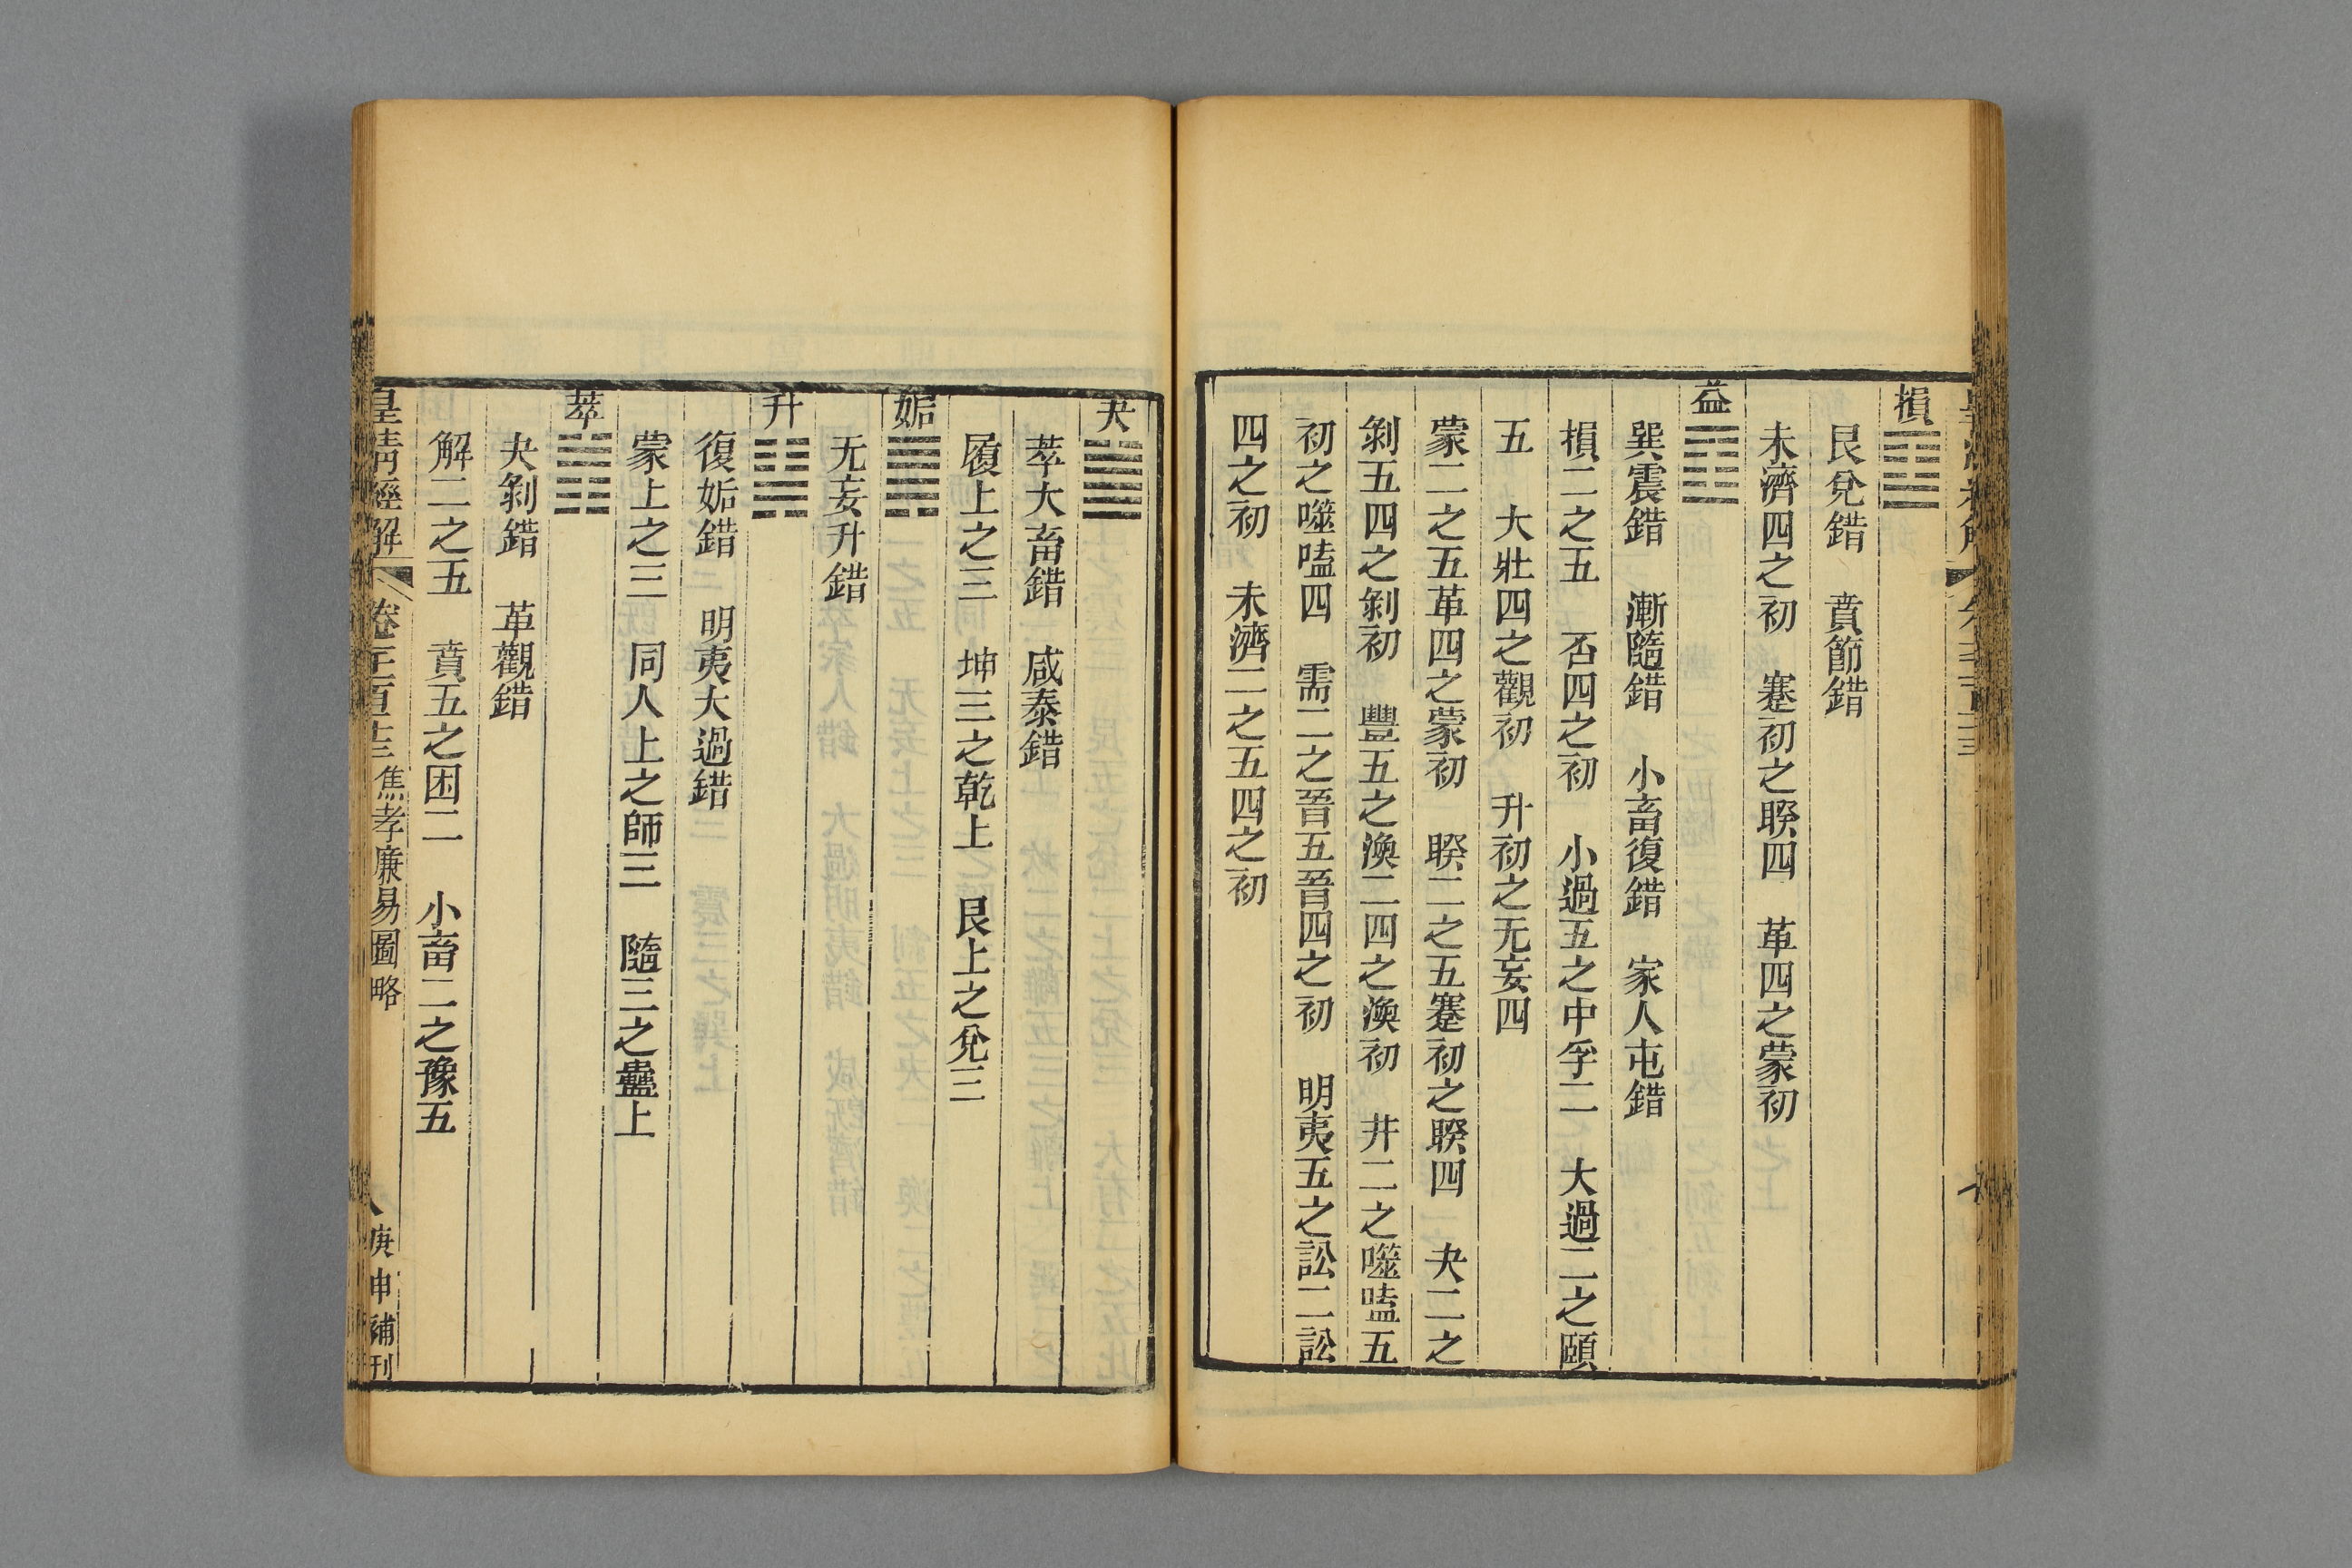 損䷨
艮兌錯　賁節錯
未濟四之初　蹇初之睽四　革四之蒙初
益䷩
巽震錯　漸隨錯　小畜復錯　家人屯錯
損二之五　否四之初　小過五之中孚二　大過二之頤
五　大壯四之觀初　升初之无妄四
蒙二之五革四之蒙初　睽二之五蹇初之睽四　夬二之
剝五四之剝初　豐五之渙二四之渙初　井二之噬嗑五
初之噬嗑四　需二之晉五晉四之初　明夷五之訟二訟
四之初　未濟二之五四之初
夬䷪
萃大畜錯　咸泰錯
履上之三　坤三之乾上　艮上之兌三
姤䷫
无妄升錯
升䷭
復姤錯　明夷大過錯
蒙上之三　同人上之師三　隨三之蠱上
萃䷬
夬剝錯　革觀錯
解二之五　賁五之困二　小畜二之豫五
皇清經解　卷　焦孝廉易圖略　庚申補刊